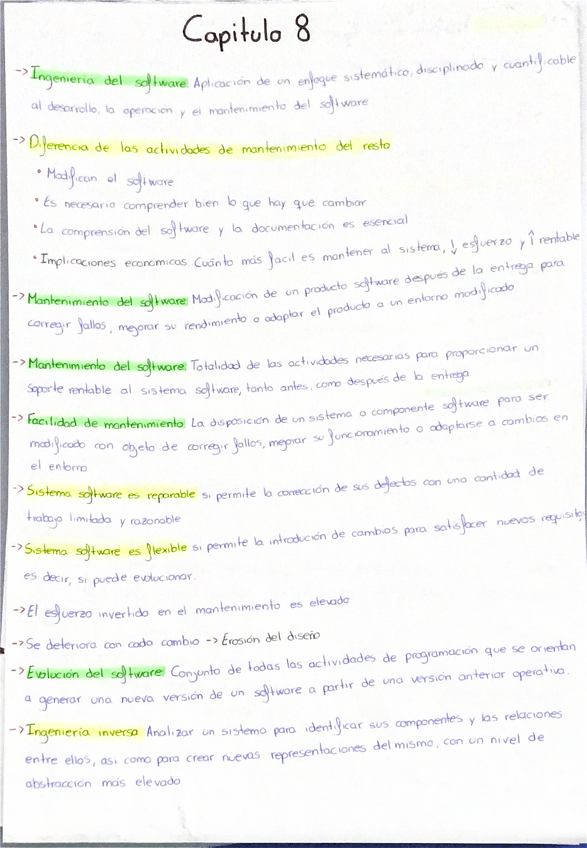 Capitulo 8
-> Ingenieria del software: Aplicación de un enfoque sistemático, disciplinado y cuantificable
al desarrollo, la operacion y el mantenimiento del software
-> Diferencia de las actividades de mantenimiento del resto
• Modifican el software
• Es necesario comprender bien lo que hay que cambiar
• La comprensión del software y la documentación es esencial
• Implicaciones economicas Cuánto más facil es mantener al sistema, ↓ esfuerzo y ↑ rentable
-> Mantenimiento del software: Modificación de un producto software después de la entrega para
corregir fallos, mejorar su rendimiento o adaptar el producto a un entorno modificado
-> Mantenimiento del software: Totalidad de las actividades necesarias para proporcionar un
soporte rentable al sistema software, tanto antes, como después de la entrega
-> Facilidad de mantenimiento: La disposición de un sistema o componente software para ser
modificado con objeto de corregir fallos, mejorar su funcionamiento o adaptarse a cambios en
el entorno
-> Sistema software es reparable si permite la corrección de sus defectos con una cantidad de
trabajo limitada y razonable
-> Sistema software es flexible si permite la introducion de cambios para satisfacer nuevos requisitos
es decir, si puede evolucionar.
-> El esfuerzo invertido en el mantenimiento es elevado
-> Se deteriora con cada cambio -> Erosión del diseño
-> Evolución del software: Conjunto de todas las actividades de programación que se orientan
a generar una nueva versión de un software a partir de una versión anterior operativa.
-> Ingenieria inversa Analizar un sistema para identificar sus componentes y las relaciones
entre ellos, asi como para crear nuevas representaciones del mismo, con un nivel de
abstracción más elevado